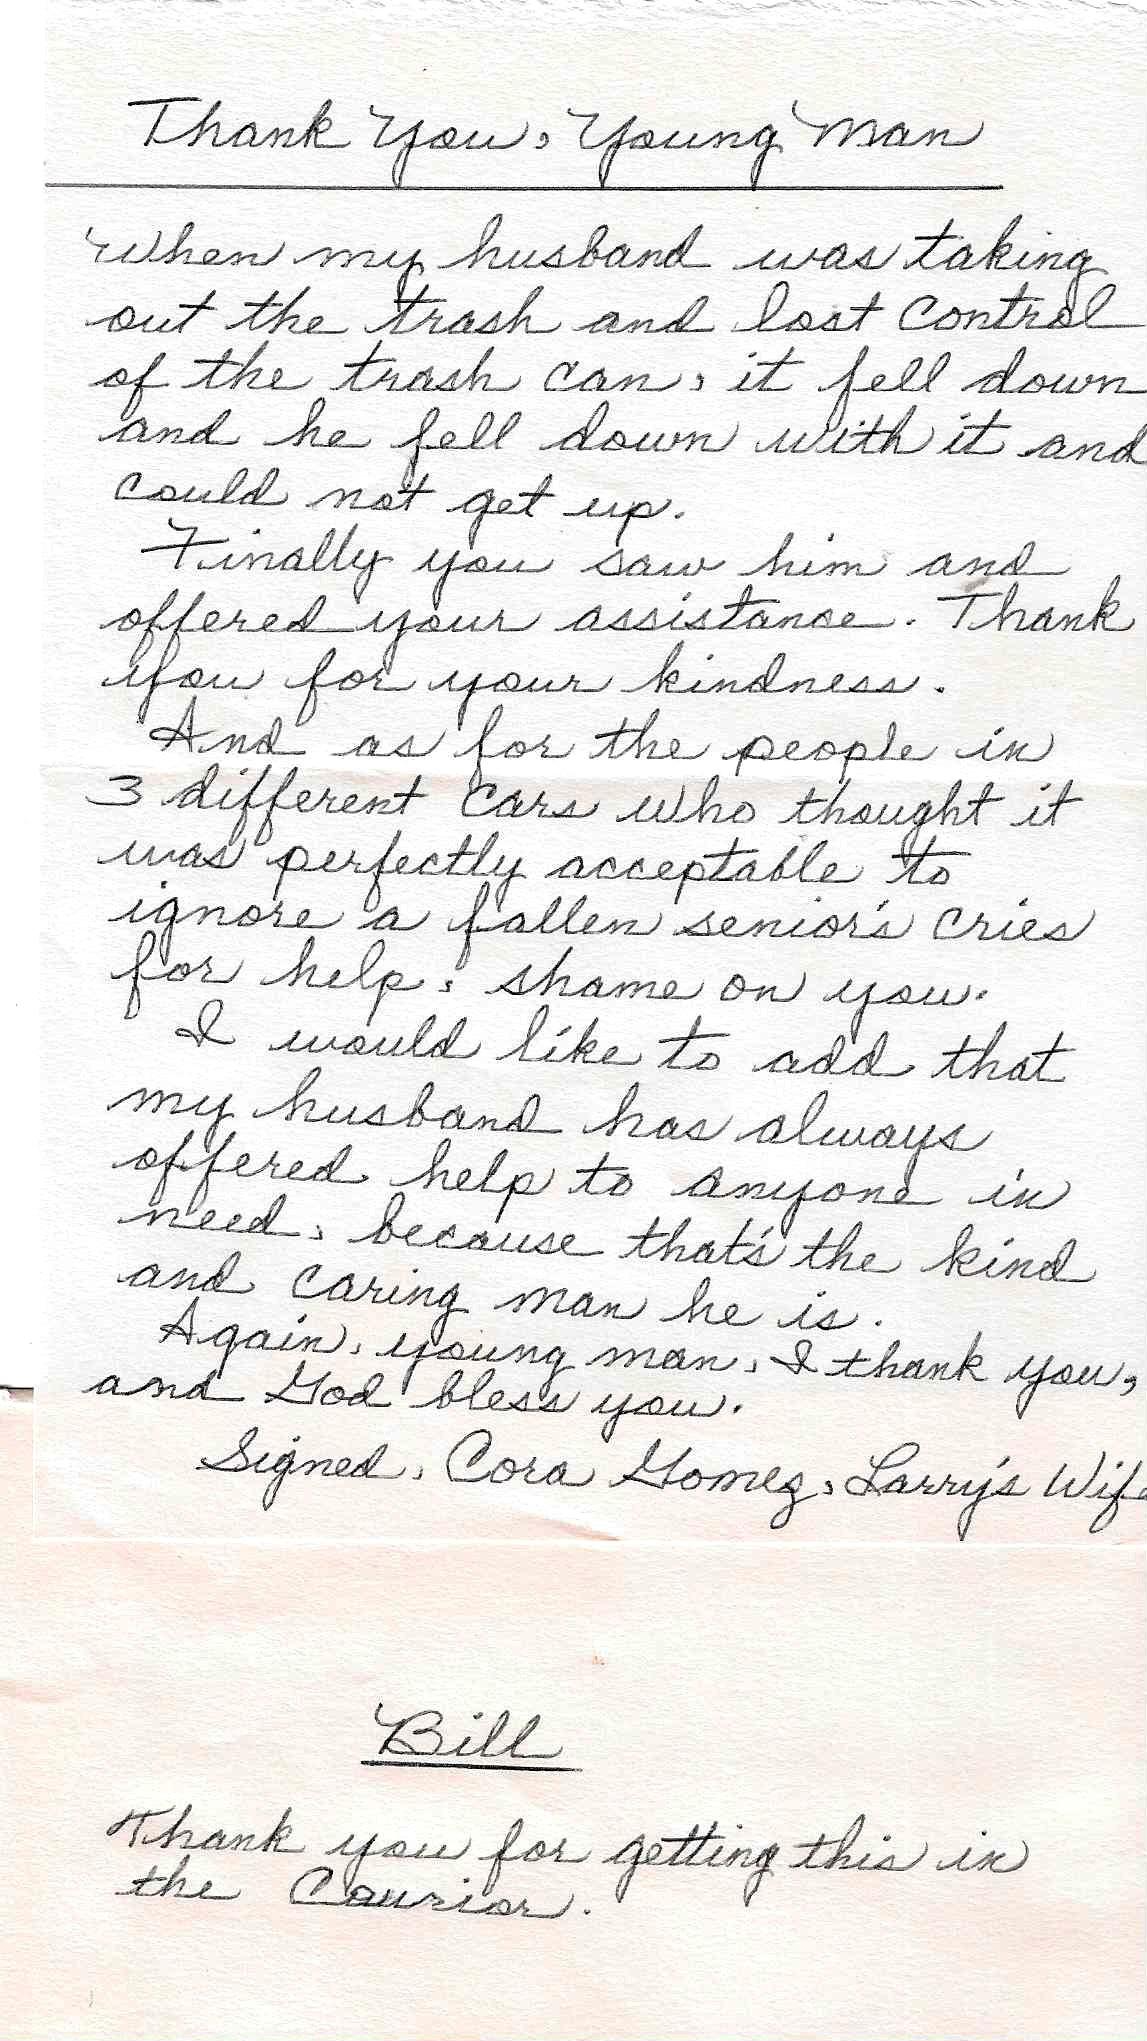 Thank You, Young Man
When my husband was taking
out the trash and lost control
of the trash can, it fell down
and he fell down with it and
could not get up.
Finally you saw him and
offered your assistance. Thank
you for your kindness.
And as for the people in
3 different cars who thought it
was perfectly acceptable to
ignore a fallen senior's cries
for help, shame on you.
I would like to add that
my husband has always
offered help to anyone in
need, because that's the kind
and caring man he is.
Again, young man, I thank you,
and God bless you.
Signed, Cora Gomez, Larry's Wife
Bill
Thank you for getting this in
the Courior.